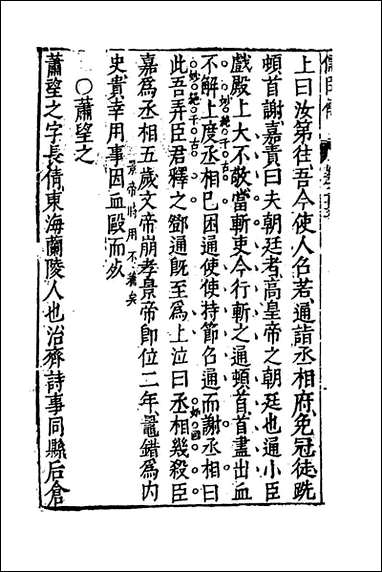 上曰汝第往吾今使人召若通詣丞相府免冠徒跣
頓首謝嘉責曰夫朝廷者高皇帝之朝廷也通小臣
戲殿上大不敬當斬吏今行斬之通頓首首盡出血
不解上度丞相已困通使使持節召通而謝丞相曰
妙絶千古
此吾弄臣君釋之鄧通既至為上泣曰丞相幾殺臣
妙絶千古
嘉為丞相五歲文帝崩孝景帝即位二年鼂錯為内
史貴幸用事因血毆而死
景帝時用不著矣
○蕭望之
蕭望之字長倩東海蘭陵人也治齊詩事同縣后倉